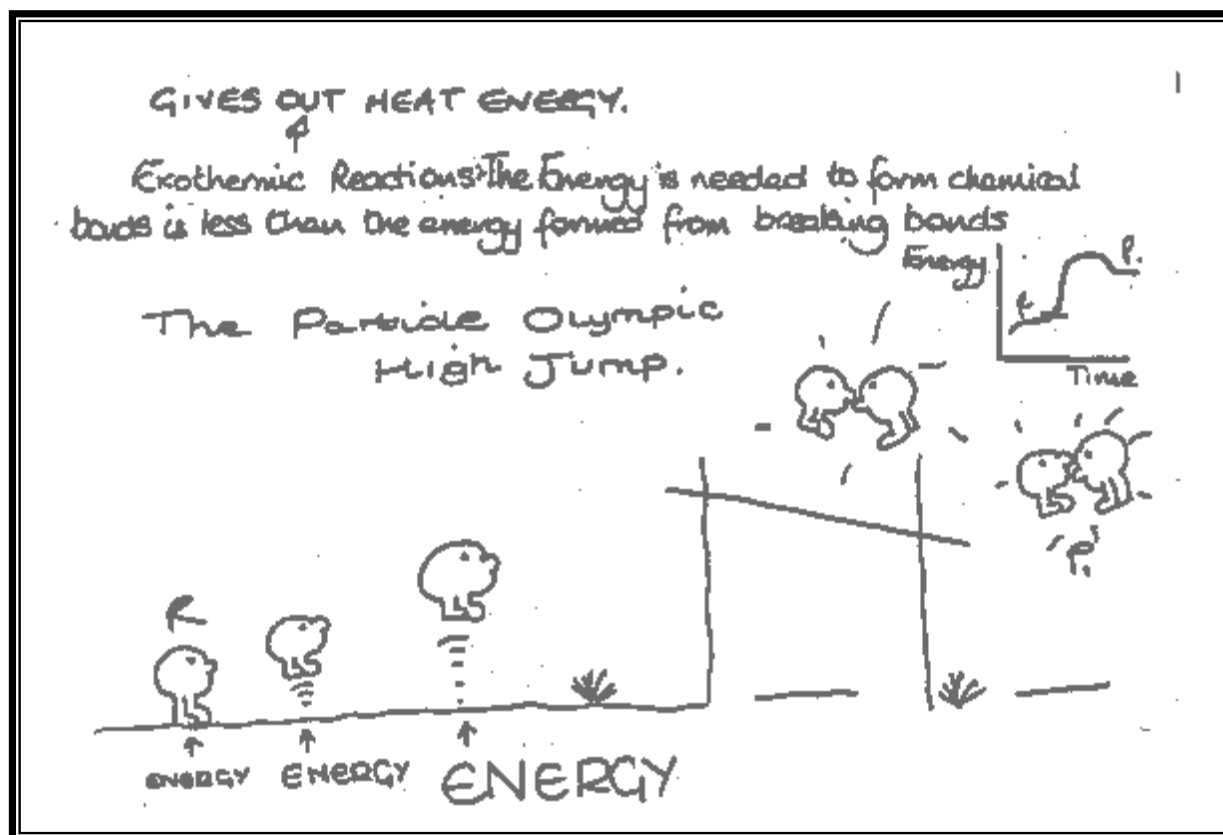 1
GIVES OUT HEAT ENERGY.
Exothermic Reactions: The Energy is needed to form chemical
bonds is less than the energy formed from breaking bonds
Energy
P.
r
Time
The Particle Olympic
High Jump.
R
P.
ENERGY ENERGY ENERGY